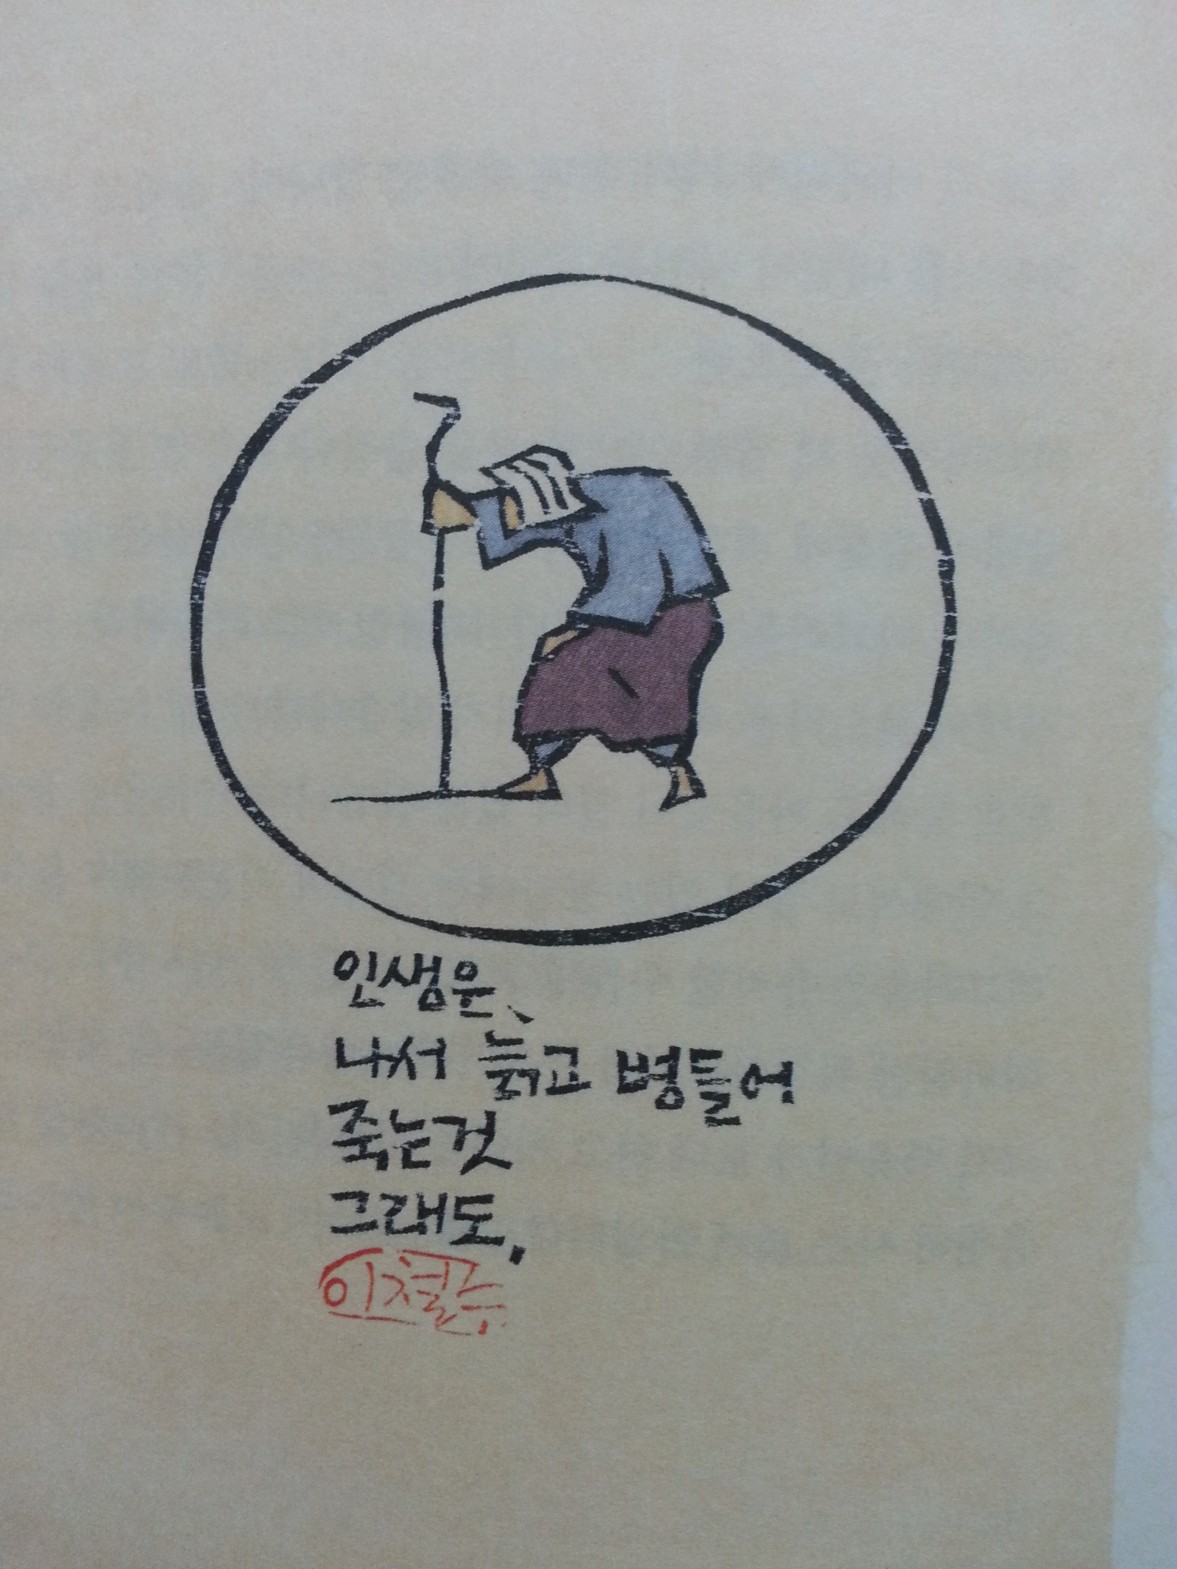 인생은,
나서 늙고 병들어
죽는것
그래도,
이철수